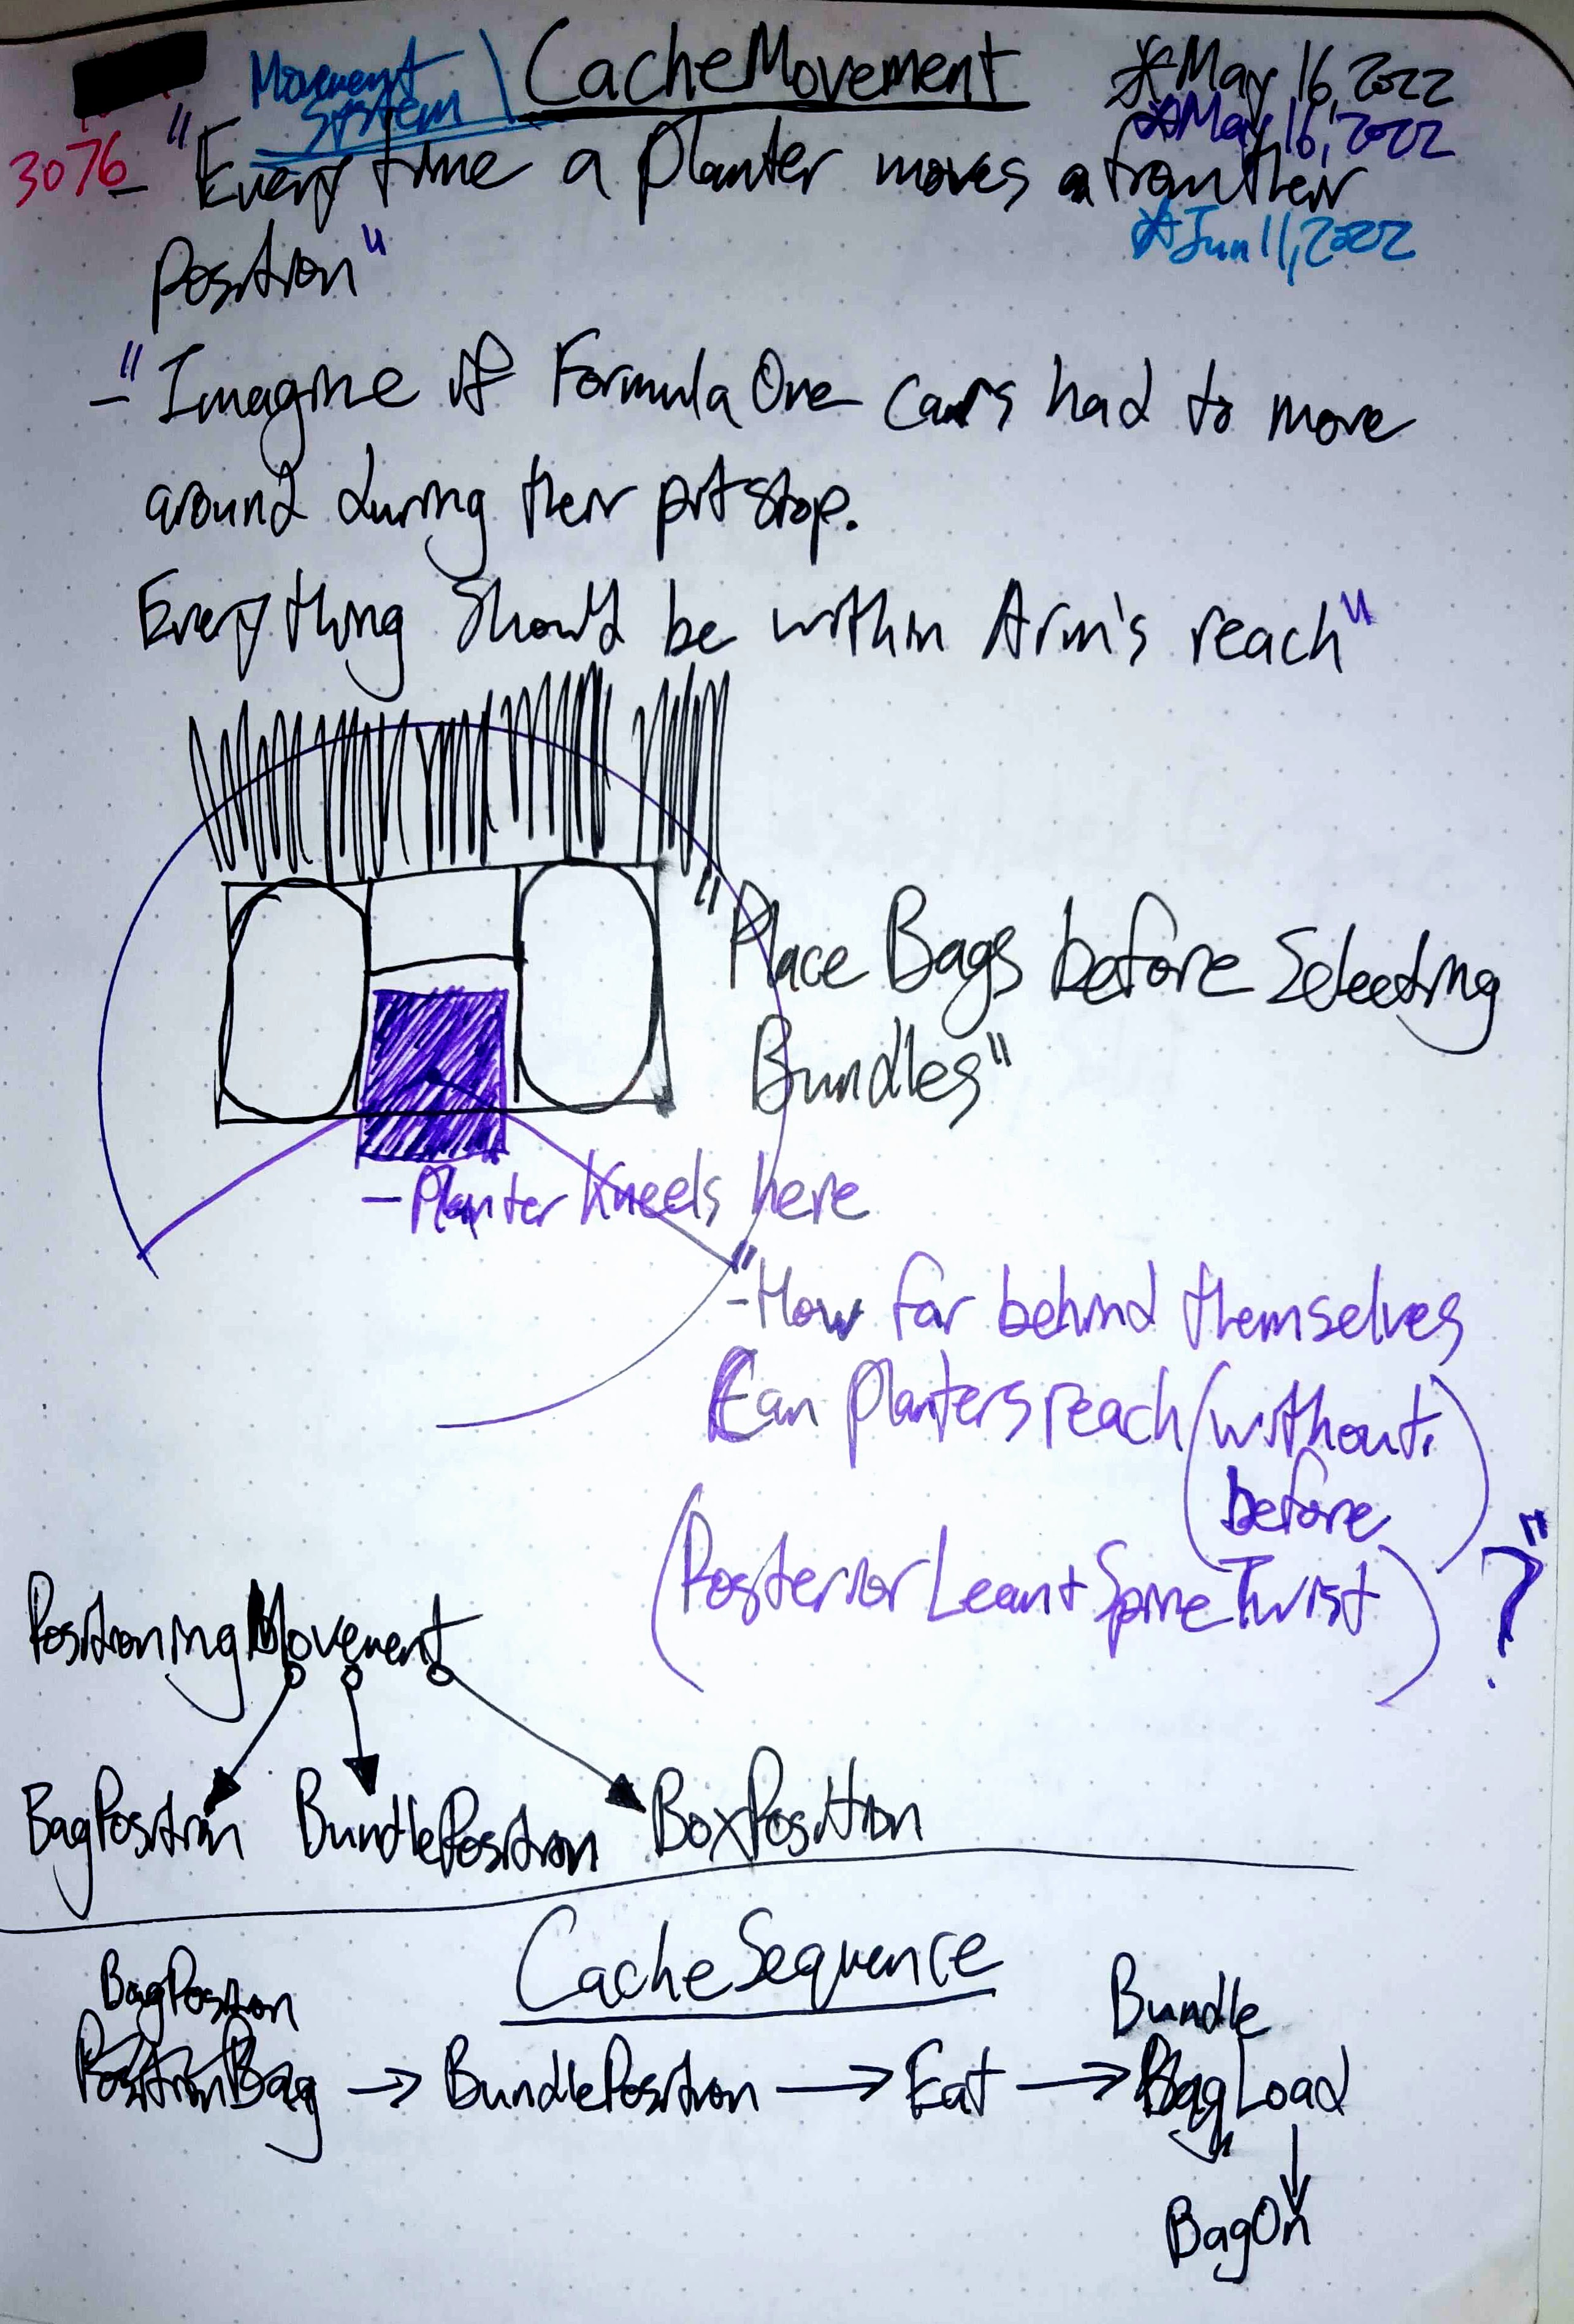 Movement \ CacheMovement *May 16, 2022
System *May 16, 2022
3076 - "Every time a Planter moves from their
*Jun 11, 2022
Position"
- "Imagine if Formula One cars had to move
around during their pitstop.
Everything Should be within Arm's reach"
"Place Bags before Selecting
Bundles"
- Planter Kneels here
"- How far behind themselves
Can Planters reach (without,
before)
(Posterior Lean + Spine Twist) ?"
PositioningMovement
BagPosition BundlePosition BoxPosition
CacheSequence
BagPosition Bundle
PositionBag → BundlePosition → Eat → BagLoad
BagOn